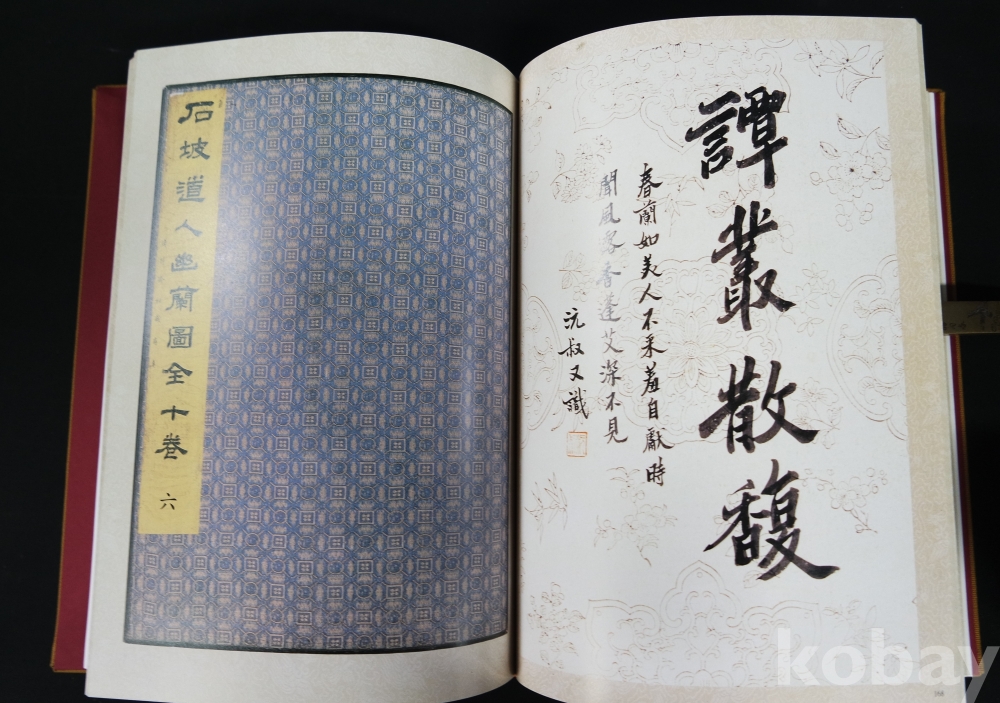 石坡道人幽蘭圖全十卷 六
譚叢散馥
春蘭如美人不采羞自獻時
聞風露香蓬艾深不見
沅叔又識
kobay